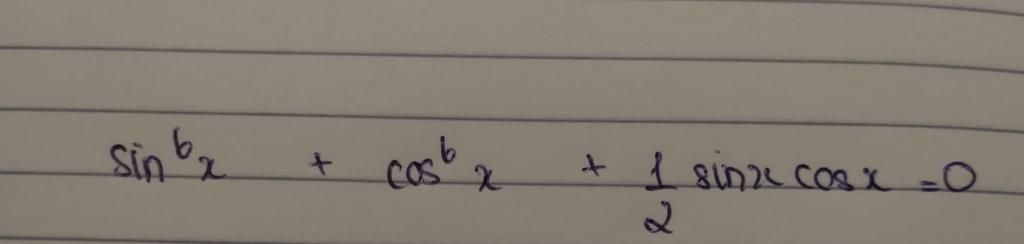 sin⁶x + cos⁶x + 1/2 sinx cosx = 0